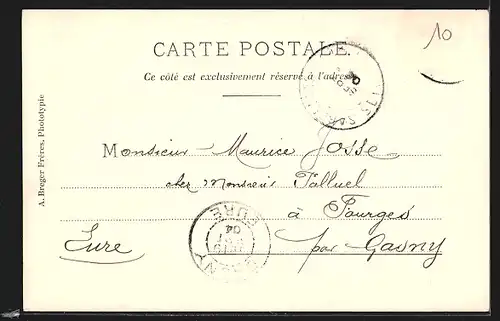 10
CARTE POSTALE.
Ce côté est exclusivement réservé à l'adresse
A. Breger Frères, Phototypie
Monsieur Maurice Josse
chez Monsieur Palluel
à Fourges
par Gasny
Eure
EURE
04
GASNY